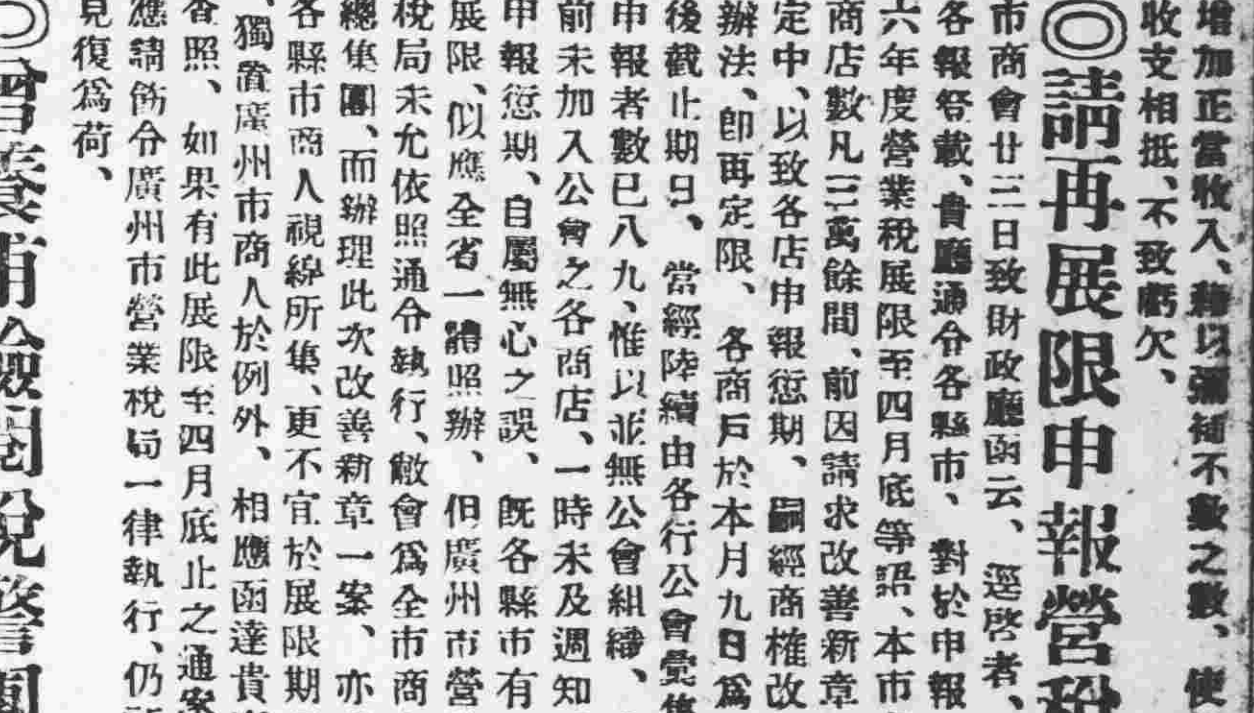 增加正當收入、藉以彌補不敷之數、使
收支相抵、不致虧欠、
◎請再展限申報營稅
市商會廿三日致財政廳函云、逕啓者、
各報登載、貴廳通令各縣市、對於申報
六年度營業稅展限至四月底等語、本市
商店數凡三萬餘間、前因請求改善新章
定中、以致各店申報愆期、嗣經商榷改
辦法、卽再定限、各商戶於本月九日爲
後截止期日、當經陸續由各行公會彙集
申報者數已八九、惟以並無公會組織、
前未加入公會之各商店、一時未及週知
申報愆期、自屬無心之誤、旣各縣市有
展限、似應全省一體照辦、但廣州市營
稅局未允依照通令執行、敝會爲全市商
總集團、而辦理此次改善新章一案、亦
各縣市商人視線所集、更不宜於展限期
獨置廣州市商人於例外、相應函達貴
查照、如果有此展限至四月底止之通案
應請飭令廣州市營業稅局一律執行、仍
見復爲荷、
◎曾養甫檢閱稅警團